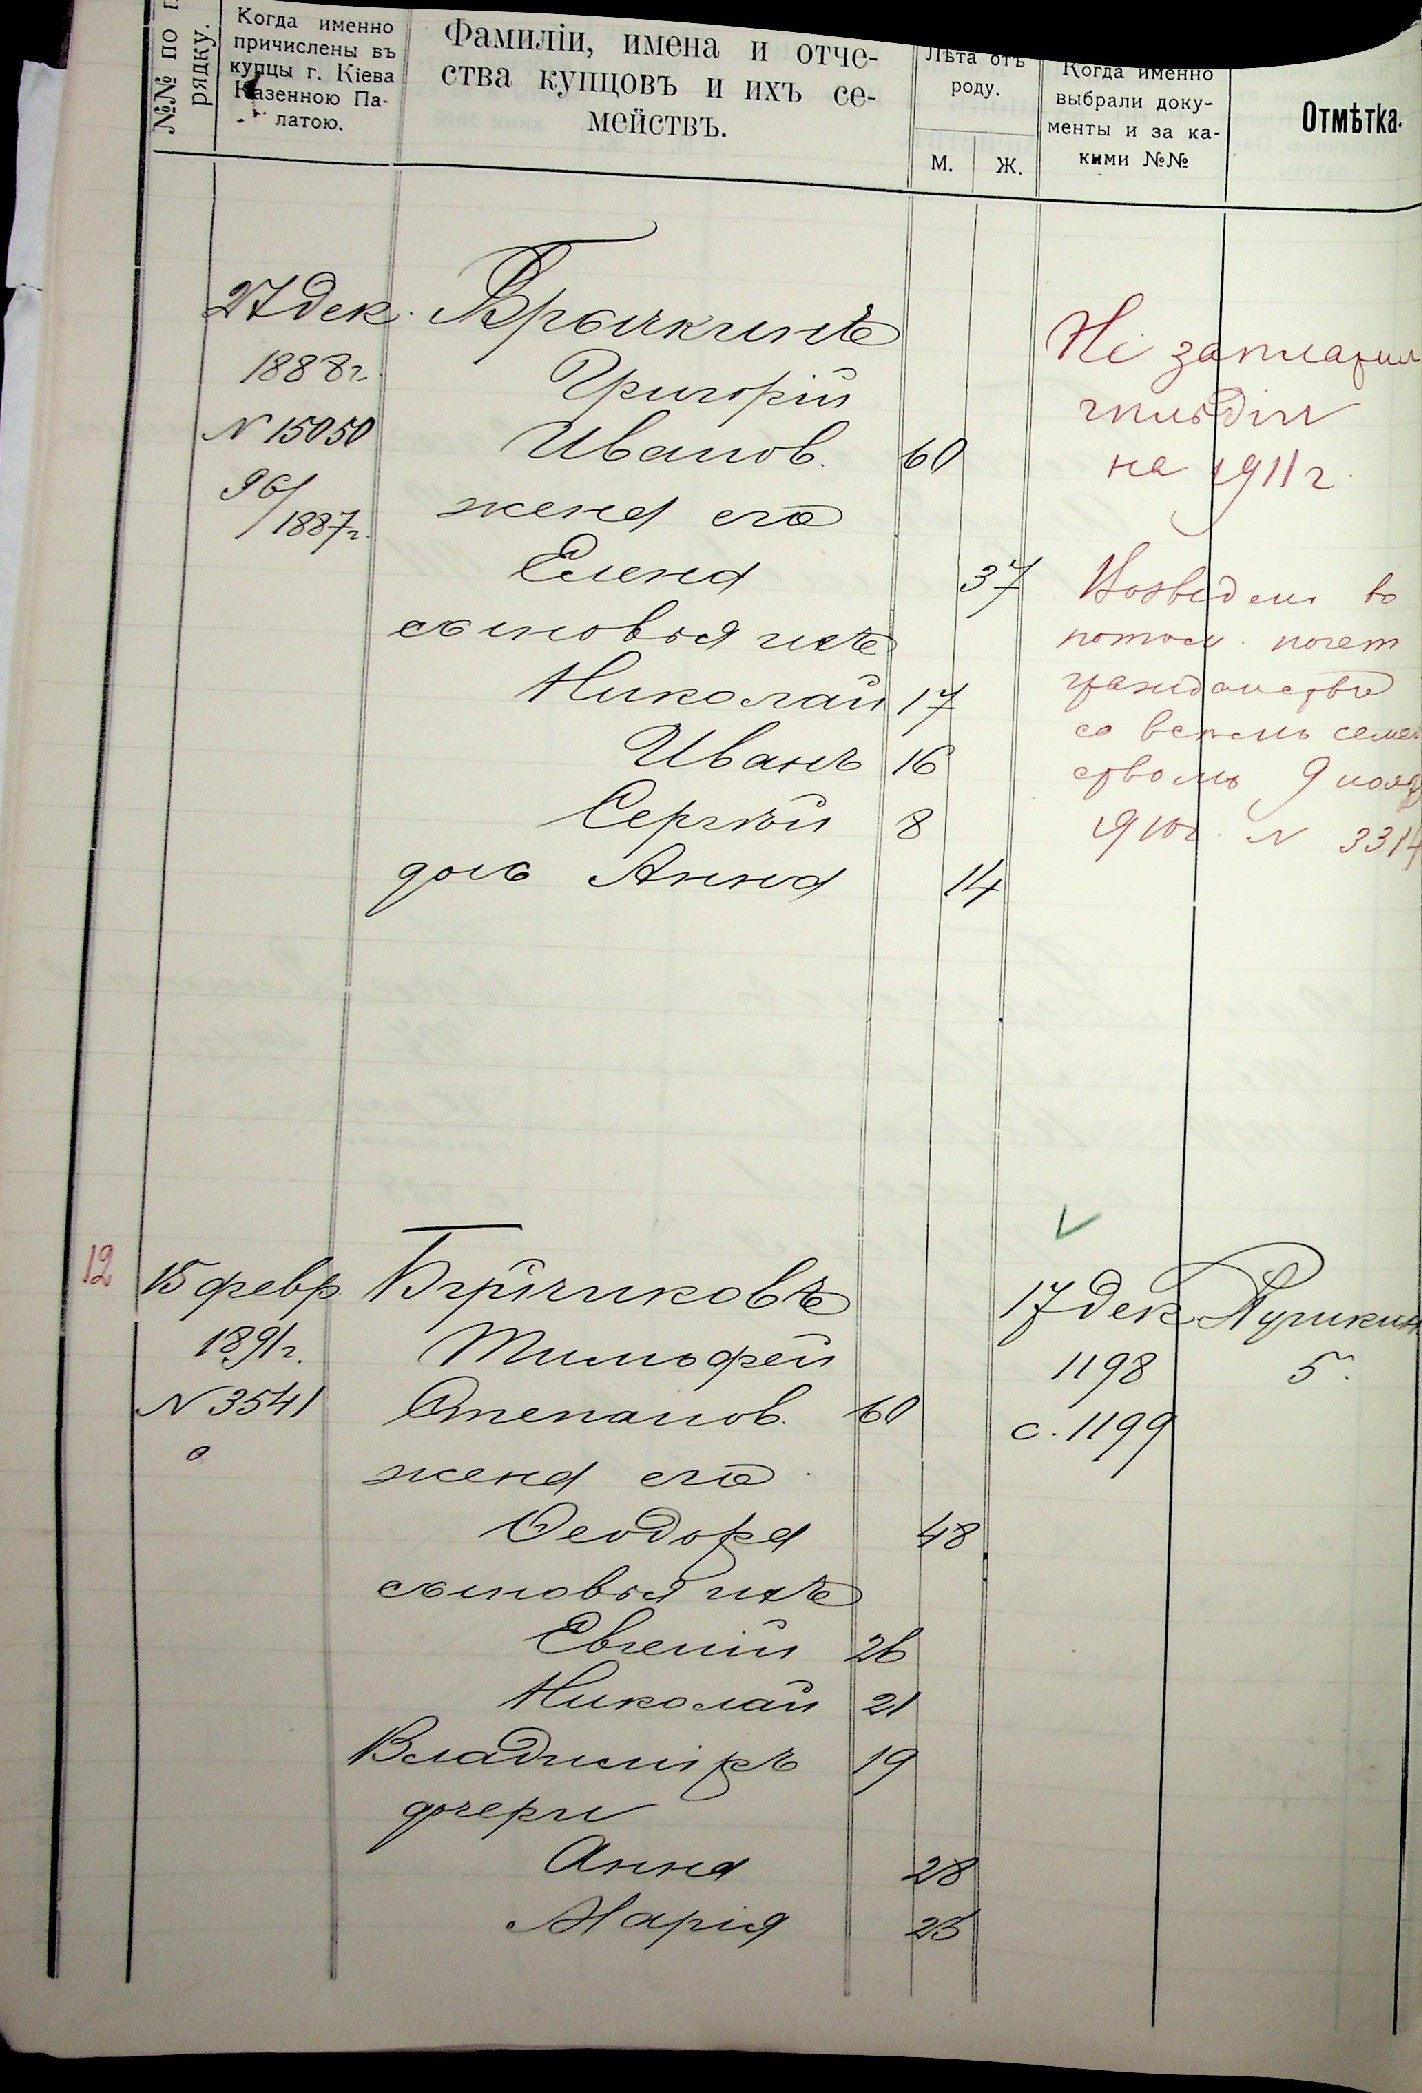 №№ по п
рядку.
Когда именно
причислены въ
купцы г. Кіева
Казенною Па-
латою.
Фамиліи, имена и отче-
ства купцовъ и ихъ се-
мействъ.
Лѣта отъ
роду.
М. Ж.
Когда именно
выбрали доку-
менты и за ка-
кими №№
Отмѣтка.
27 дек. Брычкинъ
1888 г. Григорій
N 15050 Иванов. 60
96/1887 г. жена его
Елена 37
сыновья ихъ
Николай 17
Иванъ 16
Сергѣй 8
дочь Анна 14
Не заплатил
гильдіи
на 1911 г.
Возведенъ въ
потом. почет
гражданство
со всѣмъ семей
ствомъ 9 нояб
1910 г. N 3314
12
15 февр. 
1891 г. Тимофей
N 3541 Степанов. 60
жена его
Феодора 48
сыновья ихъ
Евгеній 26
Николай 21
Владиміръ 19
дочери
Анна 28
Марія 25
17 дек Пушкин
1198 5.
с. 1199